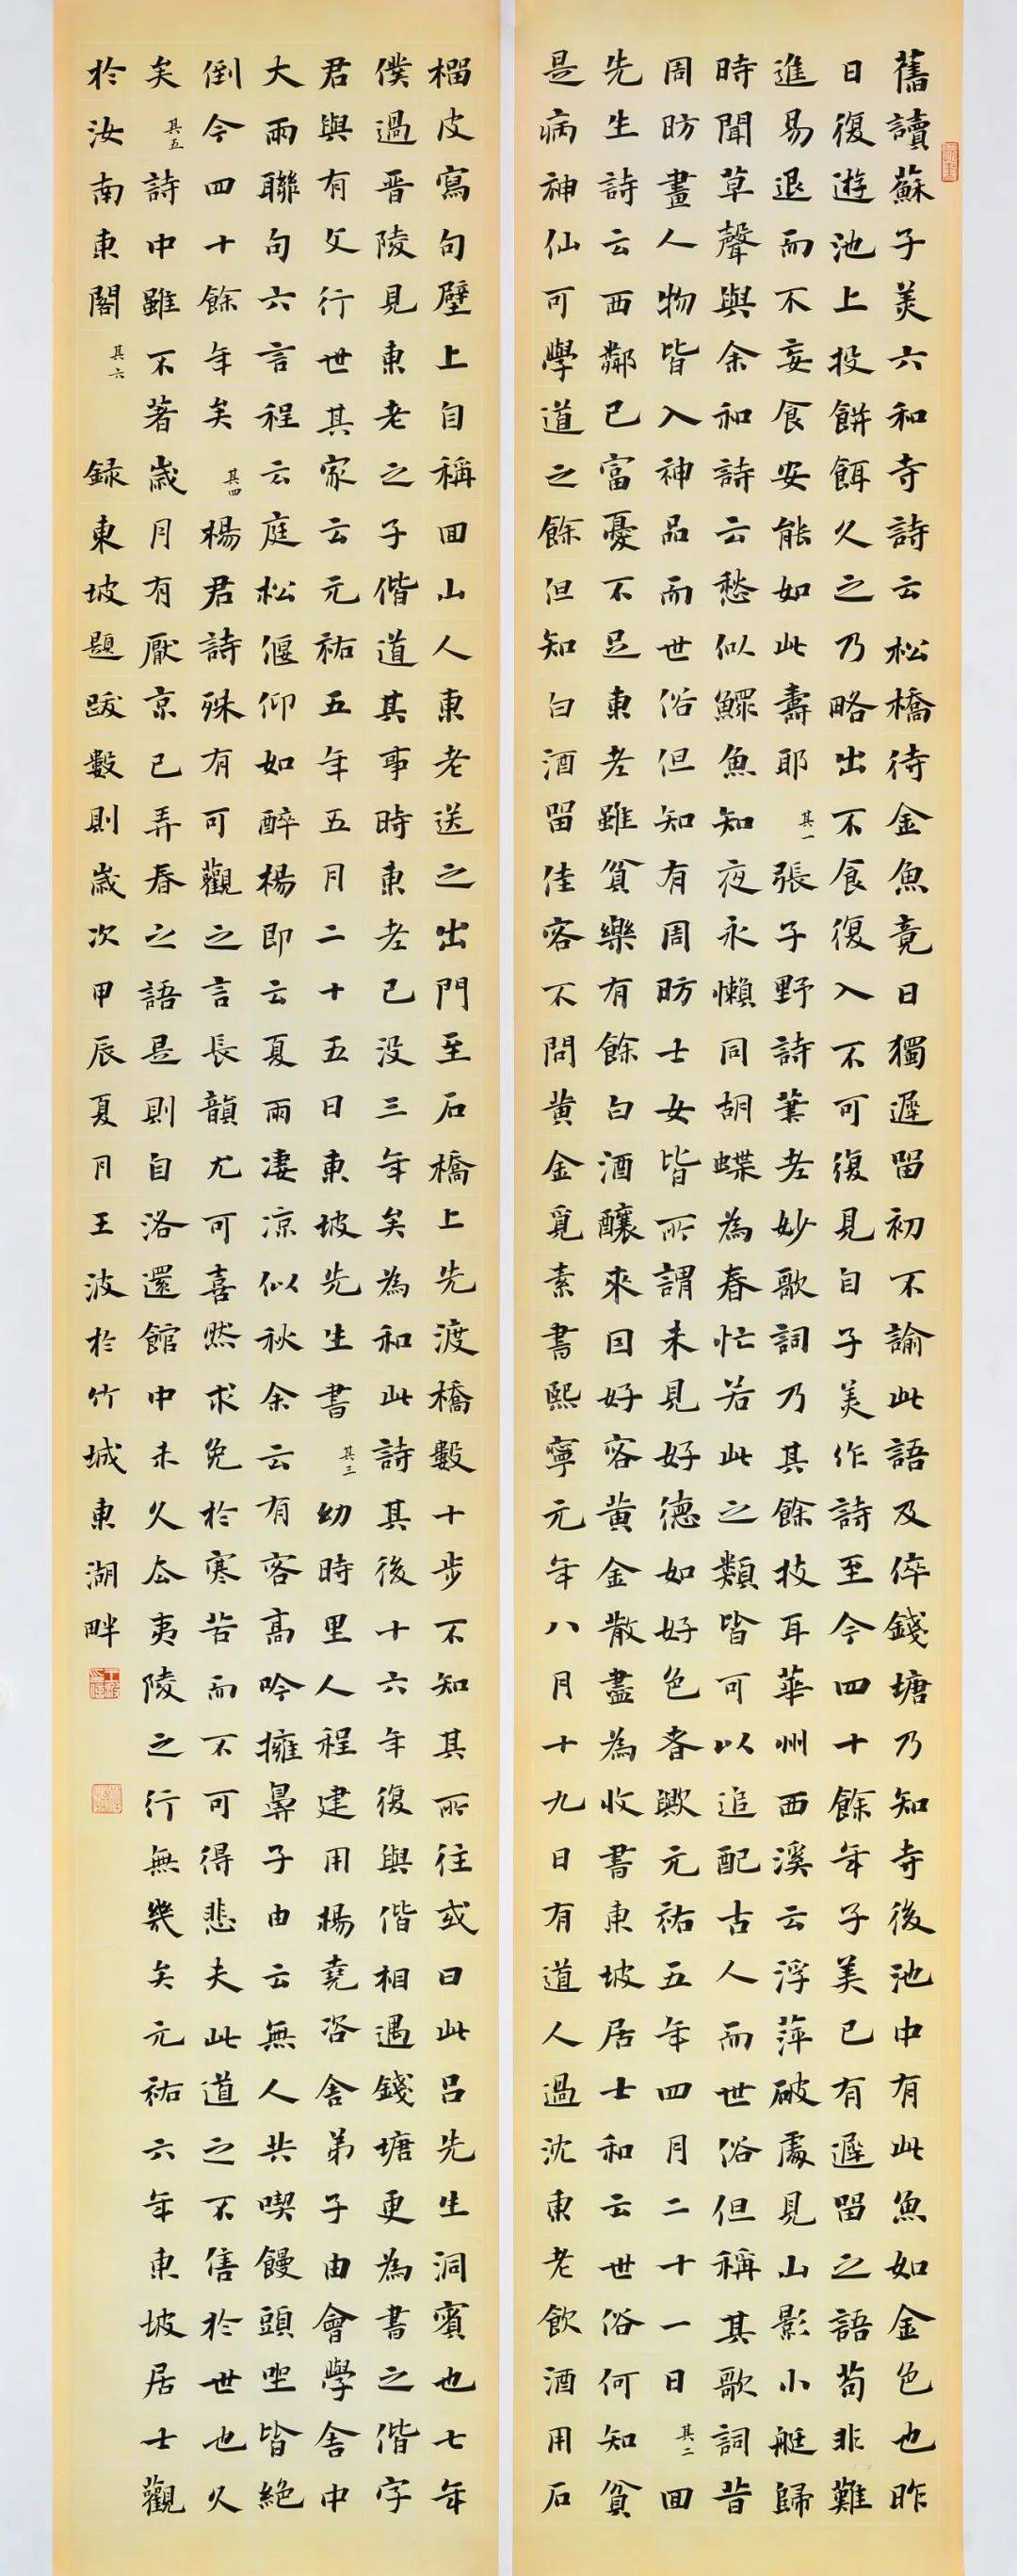 舊讀蘇子美六和寺詩云松橋待金魚竟日獨遲留初不諭此語及倅錢塘乃知寺後池中有此魚如金色也昨
日復遊池上投餅餌久之乃略出不食復入不可復見自子美作詩至今四十餘年子美已有遲留之語苟非難
進易退而不妄食安能如此壽耶其一張子野詩筆老妙歌詞乃其餘技耳華州西溪云浮萍破處見山影小艇歸
時聞草聲與余和詩云愁似鰥魚知夜永懶同胡蝶為春忙若此之類皆可以追配古人而世俗但稱其歌詞昔
周昉畫人物皆入神品而世俗但知有周昉士女皆所謂未見好德如好色者歟元祐五年四月二十一日其二回
先生詩云西鄰已富憂不足東老雖貧樂有餘白酒釀來因好客黃金散盡為收書東坡居士和云世俗何知貧
是病神仙可學道之餘但知白酒留佳客不問黃金覓素書熙寧元年八月十九日有道人過沈東老飲酒用石
榴皮寫句壁上自稱回山人東老送之出門至石橋上先渡橋數十步不知其所往或曰此呂先生洞賓也七年
僕過晉陵見東老之子偕道其事時東老已沒三年矣為和此詩其後十六年復與偕相遇錢塘更為書之偕字
君與有文行世其家云元祐五年五月二十五日東坡先生書其三幼時里人程建用楊堯咨舍弟子由會學舍中
大雨聯句六言程云庭松偃仰如醉楊即云夏雨淒涼似秋余云有客高吟擁鼻子由云無人共喫饅頭坐皆絕
倒今四十餘年矣其四楊君詩殊有可觀之言長韻尤可喜然求免於寒苦而不可得悲夫此道之不售於世也久
矣其五詩中雖不著歲月有厭京已弄春之語是則自洛還館中未久夷陵之行無幾矣元祐六年東坡居士觀
於汝南東閣其六 錄東坡題跋數則歲次甲辰夏月王波於竹城東湖畔